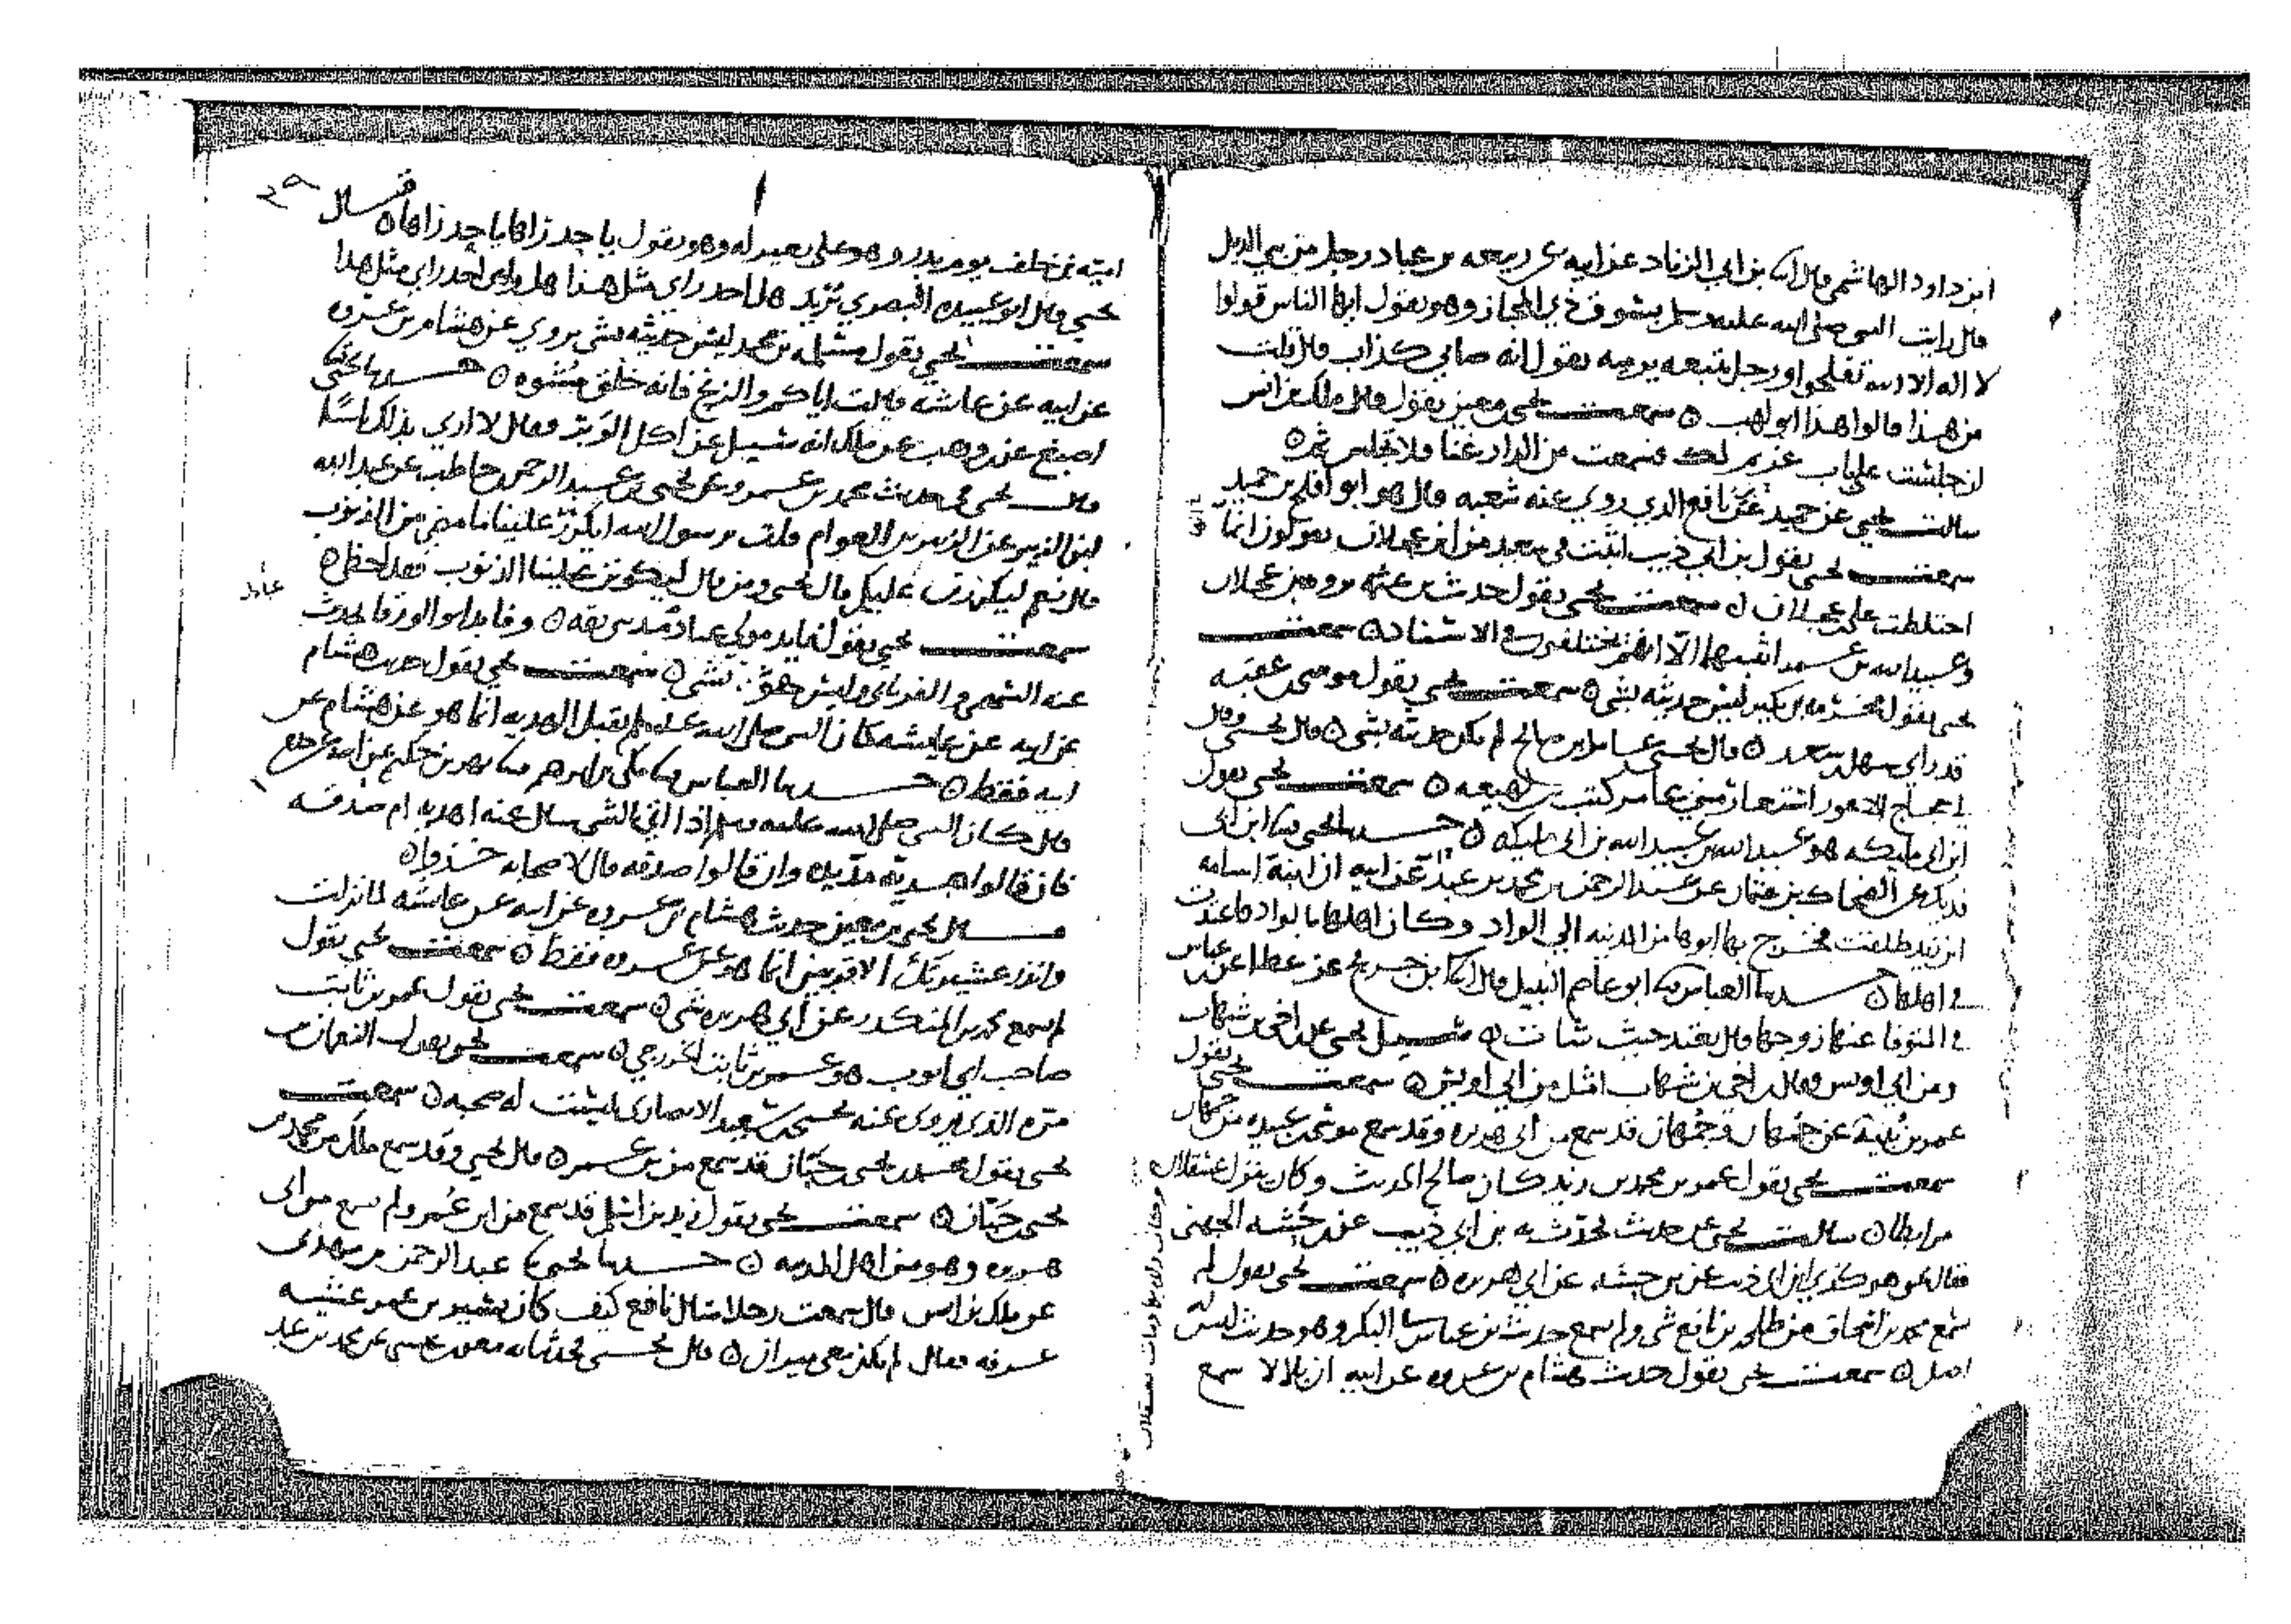 ابن داود الهاشمي قال انا بن ابي الزناد عن ابيه عن ربيعه بن عباد رجل من بني الديل
قال رايت النبي صلى الله عليه وسلم بسوق ذي المجاز وهو يقول ايها الناس قولوا
لا اله الا الله تفلحوا ورجل يتبعه يرميه يقول انه صابي كذاب قال قلت
من هذا قالوا هذا ابو لهب ه سمعت يحيى بن معين يقول قال ملك بن انس
ان جلست على باب غريم لك فسمعت من الدار غنا فلا تجلس ثم ه
سالت يحيى عن حميد بن نافع الذي روى عنه شعبه قال هو ابو افلح بن حميد
سمعت يحيى يقول بن ابي ذيب اثبت في سعيد من ابن عجلان يقولون انها
اختلطت على بن عجلان ه سمعت يحيى يقول حدث بن عيينه بن عجلان
وعبيد الله بن عمر اشبهها الا انهم يختلفون في الاسناد ه سمعت
يحيى يقول مخرمه بن بكير ليس حديثه بشي ه سمعت يحيى يقول موسى بن عقبه
قد راى سهل بن سعد ه قال يحيى عامر بن صالح لم يكن حديثه بشي ه قال يحيى وقال
لي حجاج الاعور استعار مني عامر كتب بن لهيعه ه سمعت يحيى يقول
ابن ابي مليكه هو عبد الله بن عبيد الله بن ابي مليكه ه حدثنا يحيى نا ابن ابي
فديك عن الضحاك بن عثمان عن عبد الرحمن بن محمد بن عبد عن ابيه ان ابنة اسامه
ابن زيد طلقت فخرج بها ابوها من المدينه الى الواد وكان اهلها بالواد فاعتدت
في اهلها ه حدثنا العباس نا ابو عاصم النبيل قال انا ابن جريج عن عطا عن بن عباس
في المتوفا عنها زوجها قال تعتد حيث شات ه سيل يحيى عن بن اخي بن شهاب
ومن ابي اويس فقال بن اخي بن شهاب امثل من ابي اويس ه سمعت يحيى يقول
عمر بن نبيه عن جمهان وجمهان قد سمع من ابي هريره وقد سمع موسى بن عبيده من جمهان
سمعت يحيى يقول عمر بن محمد بن زيد كان صالح الحديث وكان ينزل عسقلان
مرابطا ه سالت يحيى عن حديث يحدث به بن ابي ذيب عن بن جشه الجهني
فقال هو هكذى ابن ابي ذيب عن بن جشه عن ابي هريره ه سمعت يحيى يقول لم
يسمع محمد بن اسحاق من طلحه بن نافع شي ولم يسمع حديث بن عباس البكر وهو حديث ليس له
اصل ه سمعت يحيى يقول حديث هشام بن عروه عن ابيه ان بلالا سمع
وكان ولي بها ومات بعسقلان
قال
اميه بن خلف يوم بدر وهو على بعير له وهو يقول يا جدراها يا جدراها ه
يحيى قال ابو عبيده البصري يزيد هل احد راى مثل هذا هل راى احد راى مثل هذا
سمعت يحيى يقول مسلمه بن محمد ليس حديثه بشي يروي عن هشام بن عروه
عن ابيه عن عائشه قالت اياكم والزنج فانه خلق مشوه ه حدثنا يحيى نا
اصبغ عن بن وهب عن ملك انه سيل عن اكل الوبر فقال لا ارى بذلك باسا
قال يحيى في حديث محمد بن عمرو عن يحيى بن عبد الرحمن حاطب عن عبد الله
ابن الزبير عن الزبير بن العوام قلت يرسول الله ايكرر علينا ما مضى من الذنوب
قال نعم ليكررن عليكم قال يحيى ومن قال ليكونن علينا الذنوب فقد اخطا ه
سمعت يحيى يقول فايد مولى عبادل مديني ثقه ه وفايد ابو الورقا يحدث
عنه السهمي والفريابي وليس هو بشي ه سمعت يحيى يقول حديث هشام
عن ابيه عن عايشه كان النبي صلى الله عليه وسلم يقبل الهديه انما هو عن هشام عن
ابيه فقط ه حدثنا العباس نا مكي بن ابرهيم نا بهز بن حكيم عن ابيه عن جده
قال كان النبي صلى الله عليه وسلم اذا اتي بالشي سال عنه اهديه ام صدقه
فان قالوا هديه مد يده وان قالوا صدقه قال لاصحابه خذوا ه
قال يحيى بن معين حديث هشام بن عروه عن ابيه عن عائشه لما نزلت
وانذر عشيرتك الاقربين انما هو عن عروه فقط ه سمعت يحيى يقول
لم يسمع محمد بن المنكدر عن ابي هريره شي ه سمعت يحيى يقول عمر بن ثابت
صاحب ابي ايوب هو عمر بن ثابت الخزرجي ه سمعت يحيى يقول النعمان بن
مره الذي يروى عنه يحيى بن سعيد الانصاري ليست له صحبه ه سمعت
يحيى يقول محمد بن يحيى بن حبان قد سمع من بن عمر ه قال يحيى وقد سمع ملك من محمد بن
يحيى بن حبان ه سمعت يحيى يقول زيد بن اسلم قد سمع من ابن عمر ولم يسمع من ابي
هريره وهو من اهل المدينه ه حدثنا يحيى نا عبد الرحمن بن مهدي
عن ملك بن انس قال سمعت رجلا سال نافع كيف كان يسير بن عمر عشيه
عرفه فقال لم يكن معي ميزان ه قال يحيى حدثناه معن بن عيسى عن محمد بن عبد